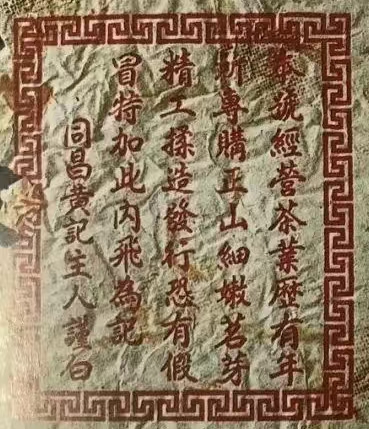 本號經營茶葉歷有年
所專購正山細嫩茗芽
精工揉造發行恐有假
冒特加此內飛為記
同昌黃記主人謹白